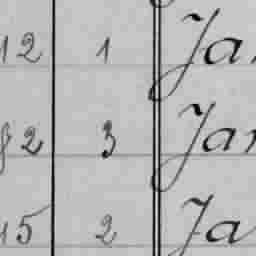 12 1 Jan
82 3 Jan
15 2 Ja